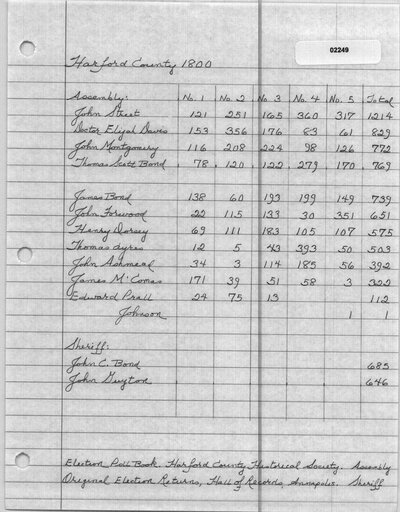 02249
Harford County 1800
Assembly: No. 1 No. 2 No. 3 No. 4 No. 5 Total
John Street 121 251 165 360 317 1214
Doctor Elijah Davis 153 356 176 83 61 829
John Montgomery 116 208 224 98 126 772
Thomas Scott Bond 78 120 122 279 170 769
James Bond 138 60 193 199 149 739
John Forwood 22 115 133 30 351 651
Henry Dorsey 69 111 183 105 107 575
Thomas Ayres 12 5 43 393 50 503
John Ashmead 34 3 114 185 56 392
James McComas 171 39 51 58 3 322
Edward Prall 24 75 13 112
Johnson 1 1
Sheriff:
John C. Bond 685
John Guyton 646
Election Poll Book. Harford County Historical Society. Assembly
Original Election Returns, Hall of Records, Annapolis. Sheriff